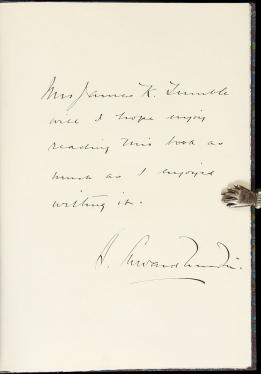 Mrs James K. Trumble
will I hope enjoy
reading this book as
much as I enjoyed
writing it.